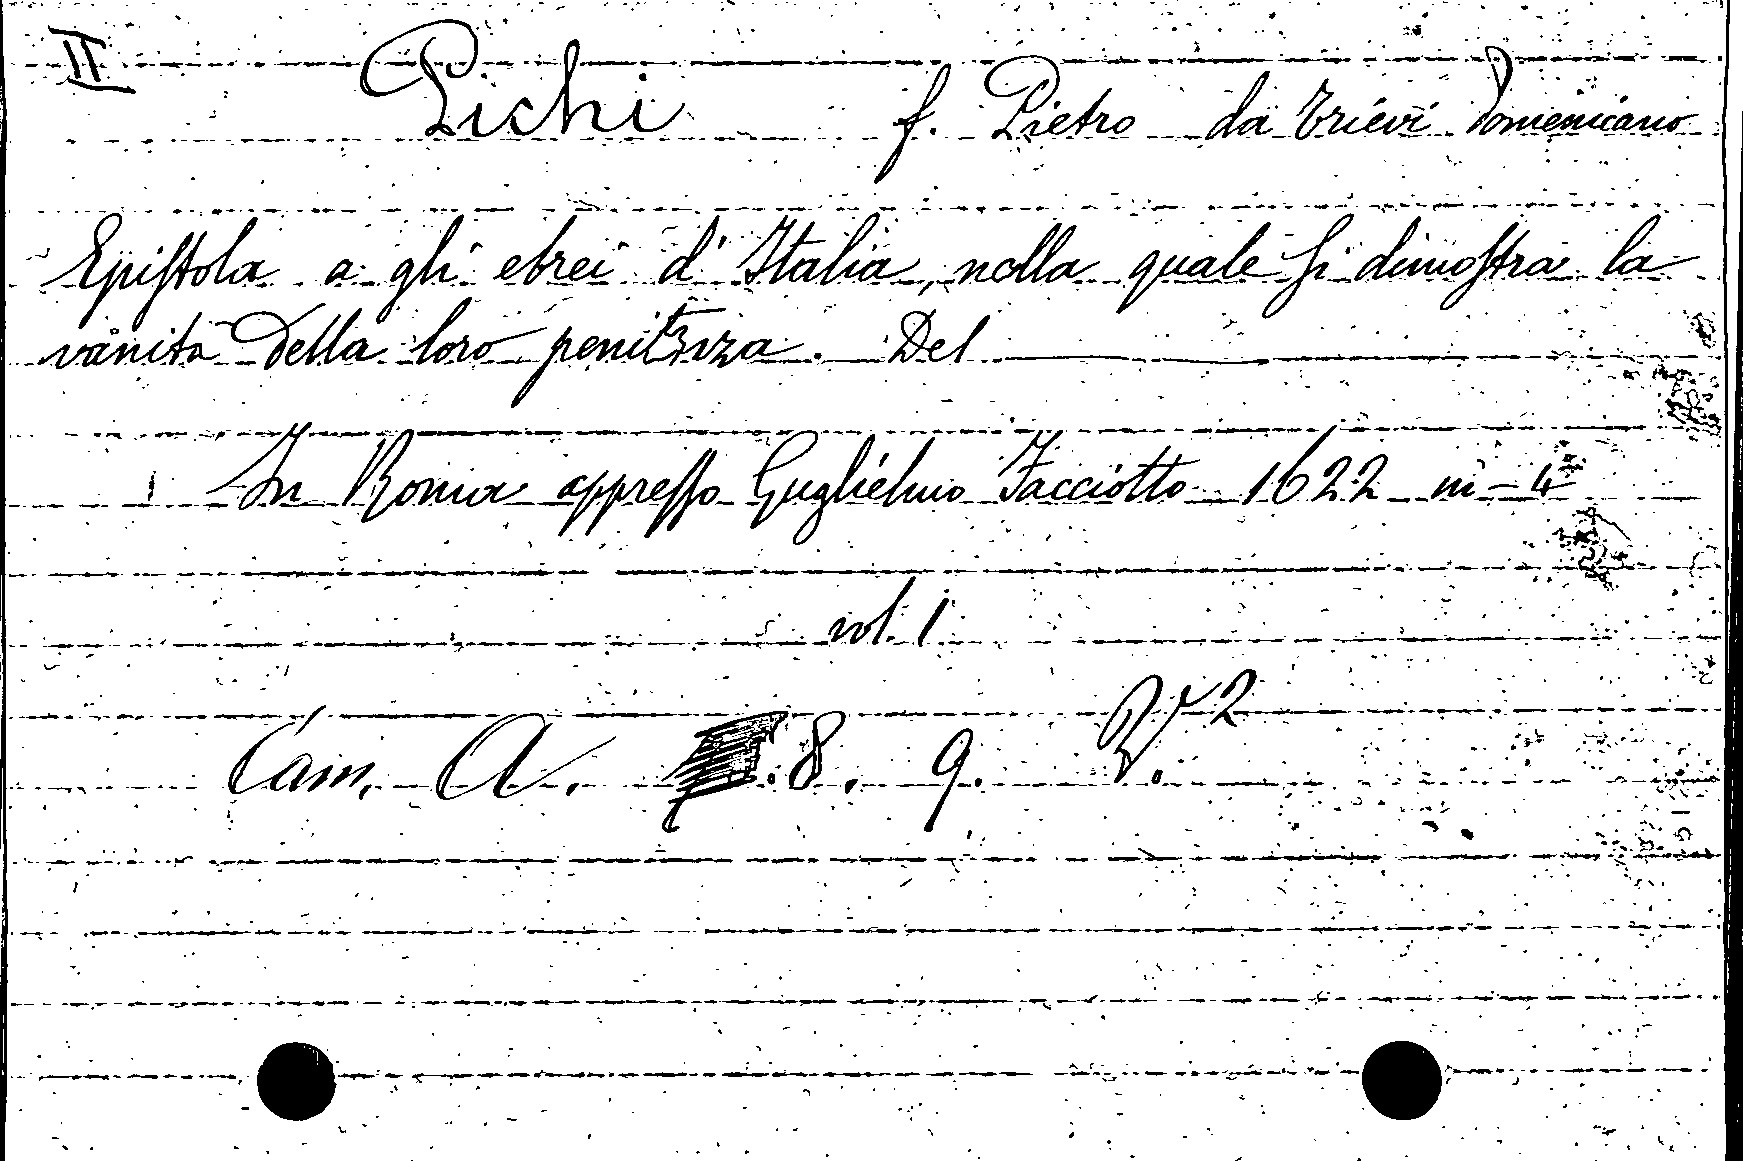 II Pichi f. Pietro da Trievi Domenicano
Epiſtola a gli ebrei d'Italia, nella quale ſi dimoſtra la
vanità della loro penitenza. Del
In Roma appreſſo Guglielmo Facciotto 1622 in-4°
vol. 1
Cam. A. .8. 9.